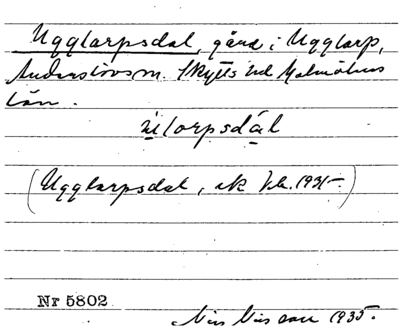 Ugglarpsdal, gård i Ugglarp,
Anderslövs sn. Skytts hd Malmöhus
län.
ùlorpsdál
(Ugglarpsdal, ek kb. 1931-)
Nr 5802
Nils Nilsson 1935.